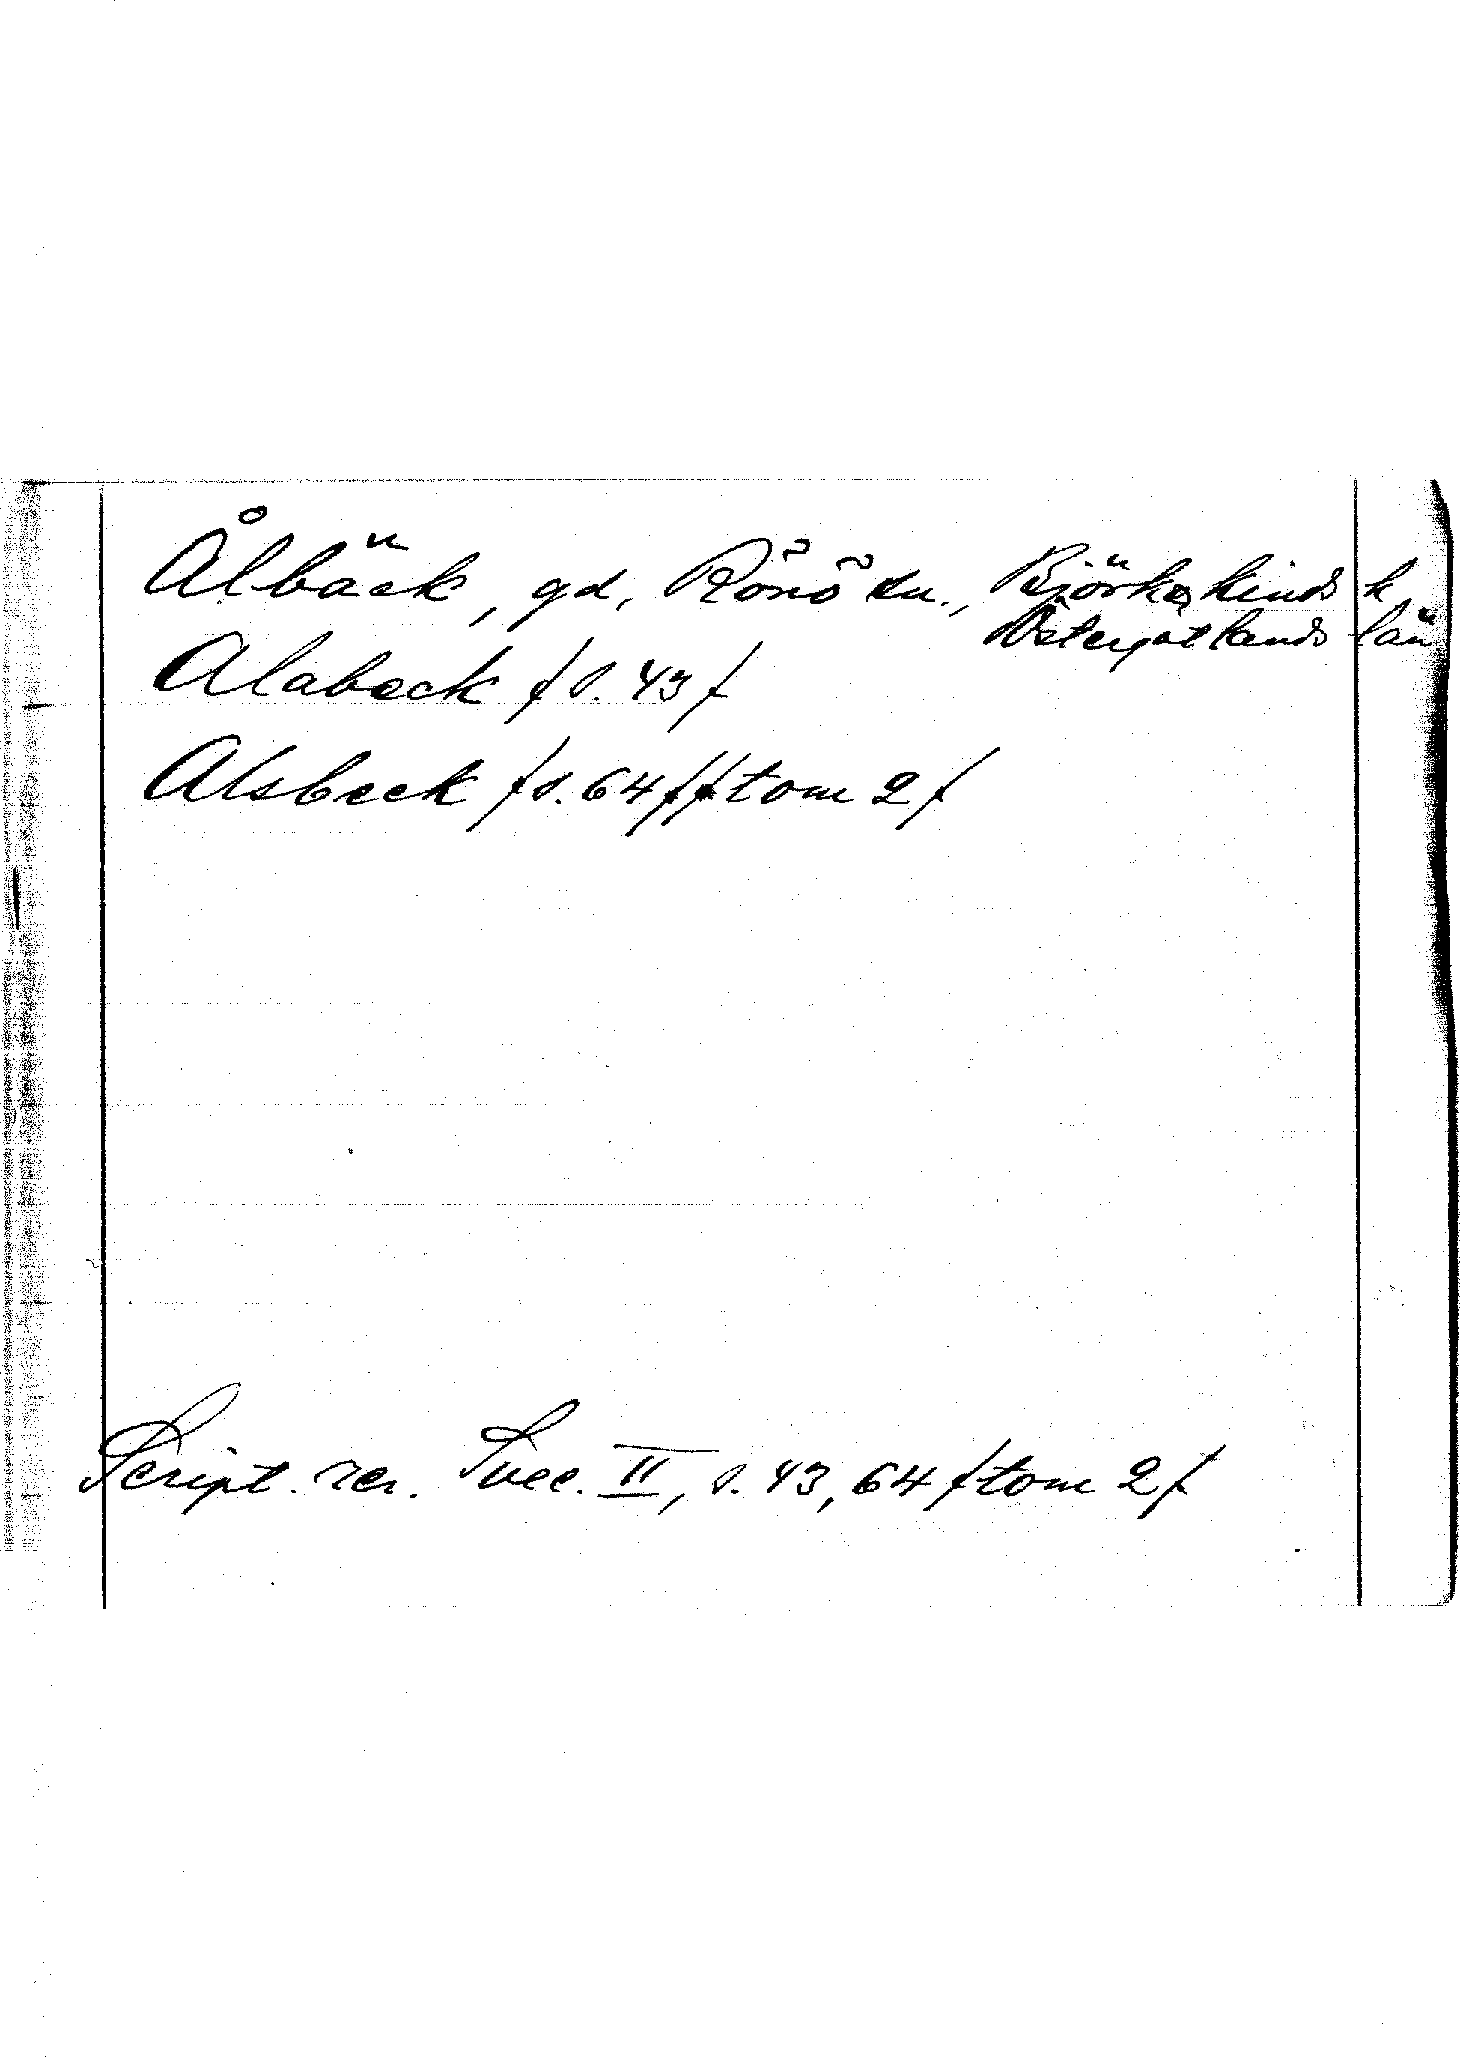 Ålbäck, gd, Rönö sn., Björkekinds h
Östergötlands län
Alabeck /s. 43/
Alsbeck /s. 64/ /tom 2/
Script. rer. Svec. II, s. 43, 64 /tom 2/